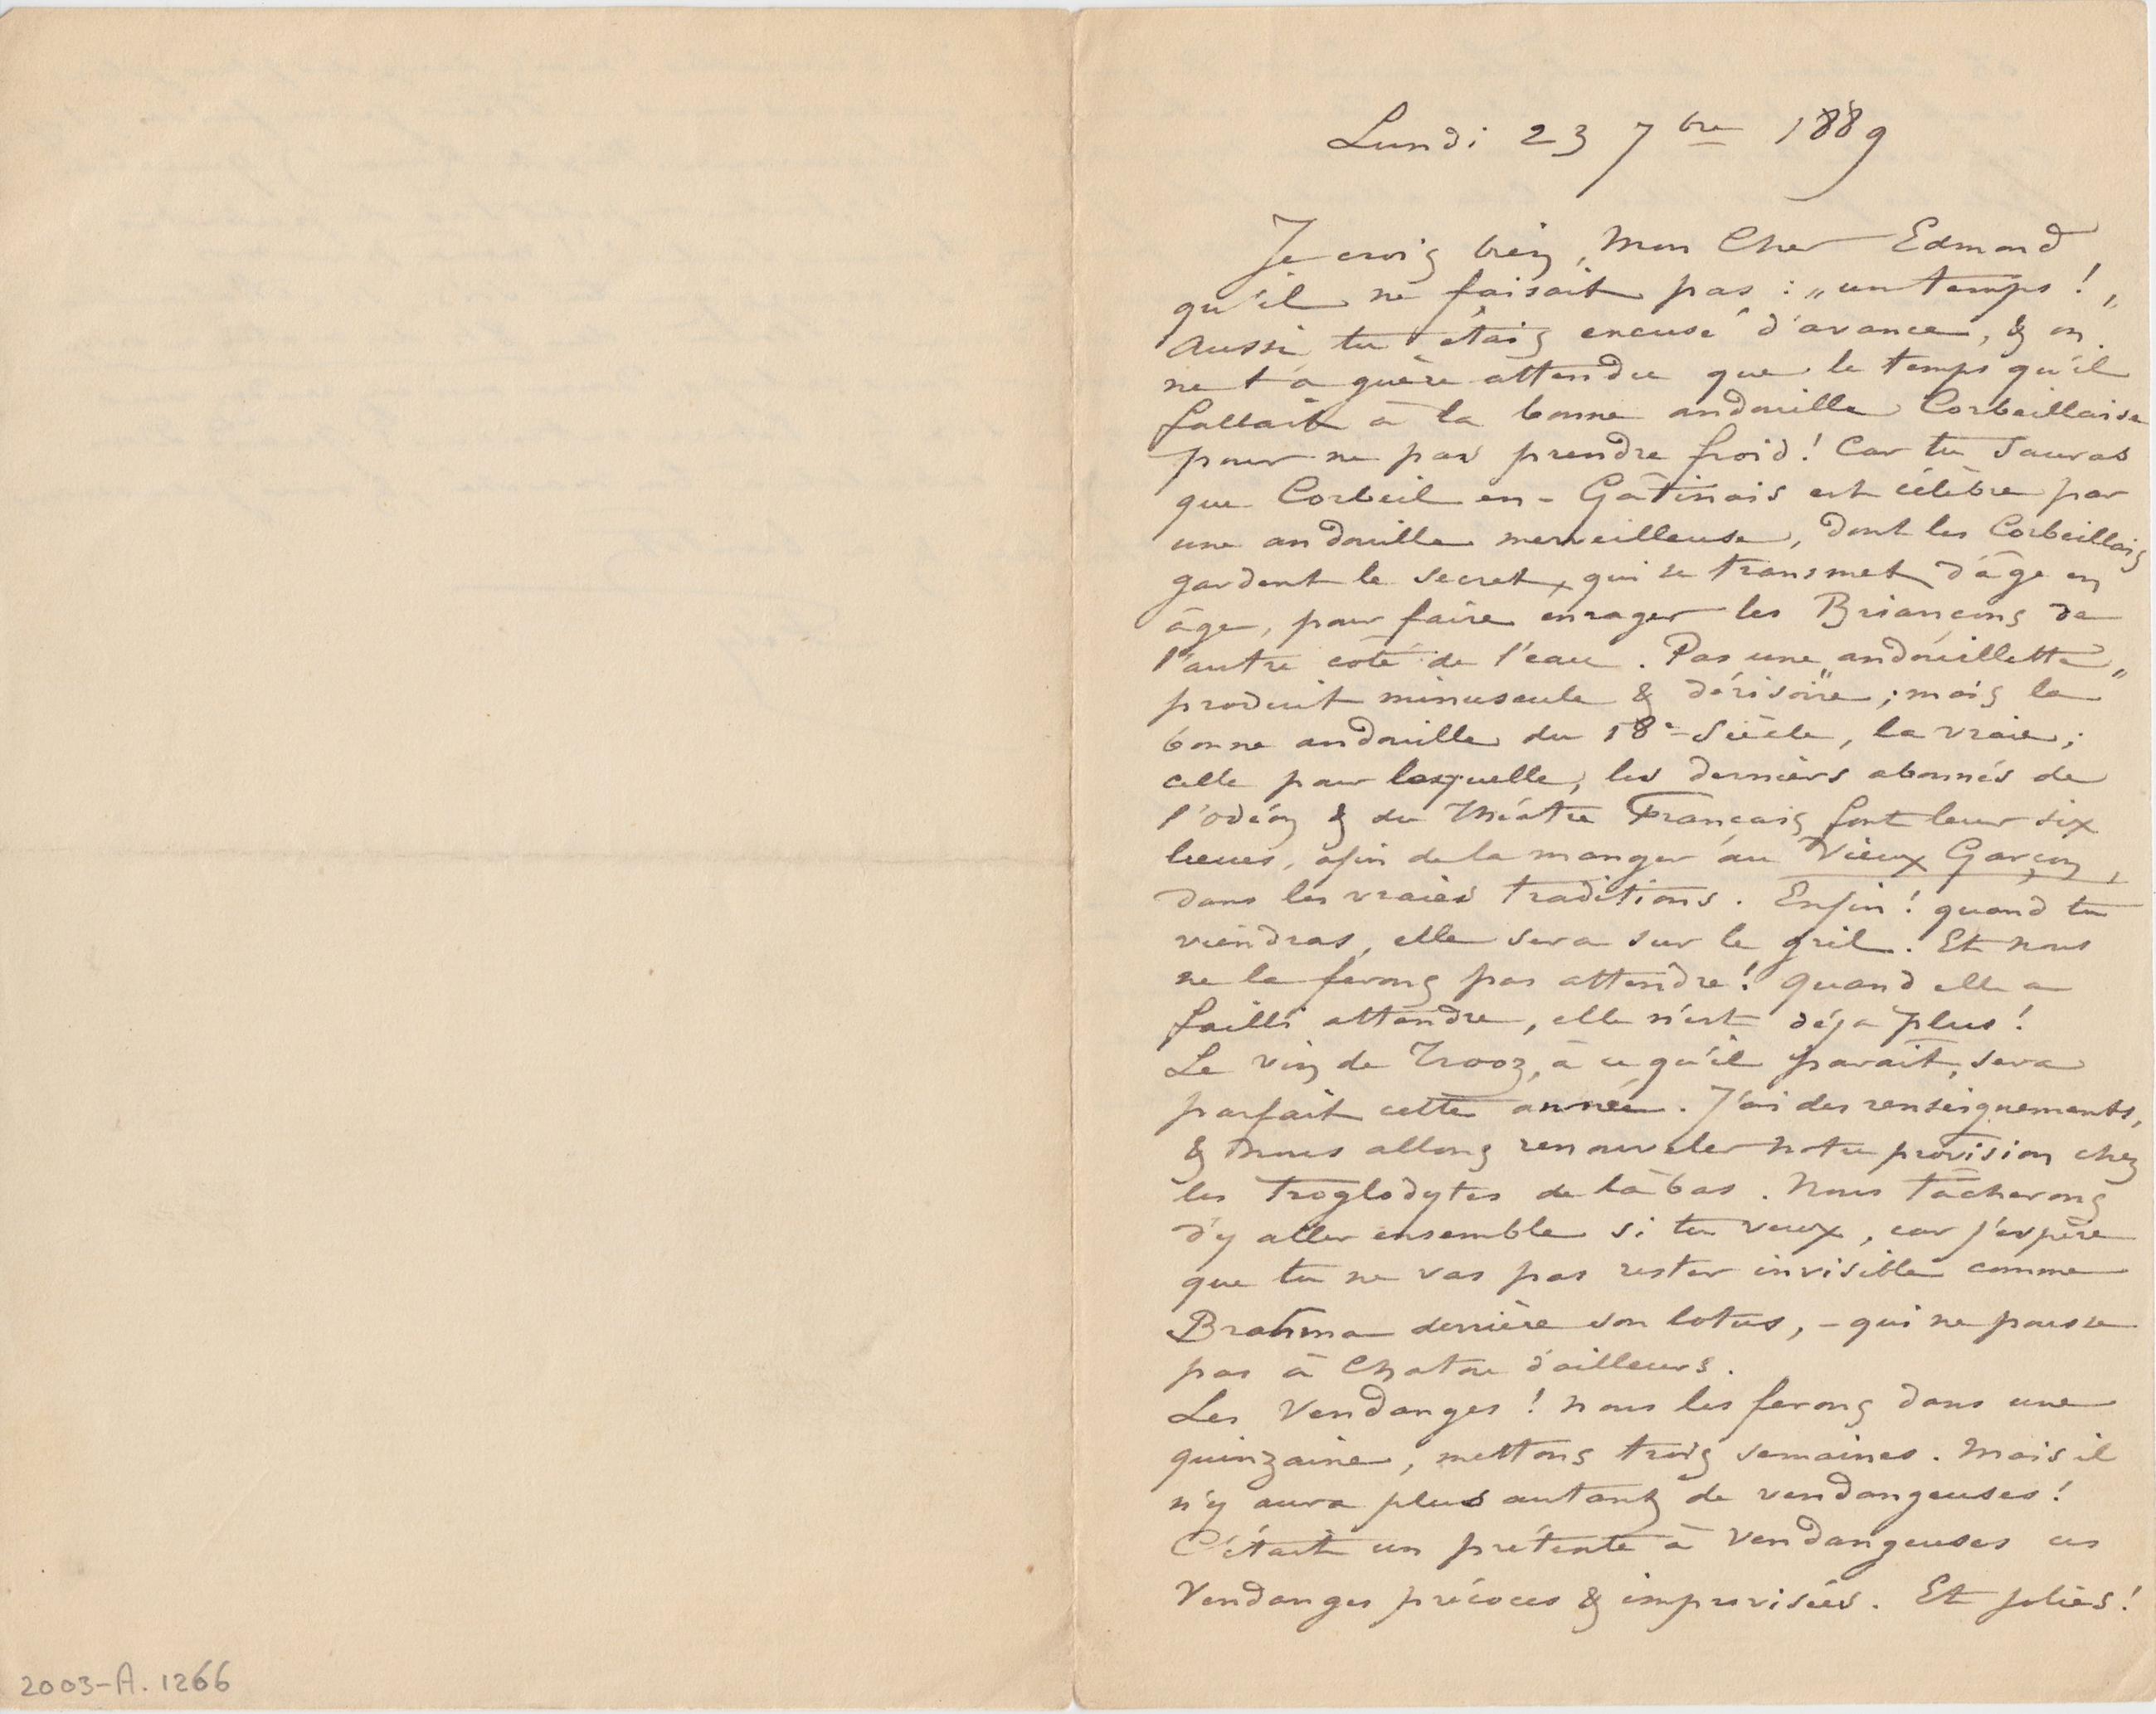 Lundi 23 7bre 1889
Je crois bien, Mon Cher Edmond,
qu'il ne faisait pas : „un temps! „
Aussi tu étais excusé d'avance, & on
ne t'a guère attendu que le temps qu'il
fallait à la bonne andouille Corbeillaise
pour ne pas prendre froid! Car tu sauras
que Corbeil en-Gâtinais est célèbre par
une andouille merveilleuse, dont les Corbeillais
gardent le secret, qui se transmet d'âge en
âge, pour faire enrager les Briançons de
l'autre coté de l'eau. Pas une „andouillette„
produit minuscule & dérisoire; mais la
bonne andouille du 18e Siècle, la vraie;
celle pour laquelle, les derniers abonnés de
l'odéon & du Théâtre Français font leur six
lieues, afin de la manger au Vieux Garçon,
dans les vraies traditions. Enfin! quand tu
viendras, elle sera sur le gril. Et nous
ne la ferons pas attendre! Quand elle a
failli attendre, elle n'est déja plus!
Le vin de Trooz, à ce qu'il parait, sera
parfait cette année. J'ai des renseignements,
& nous allons renouveler notre provision chez
les Troglodytes de là bas. Nous tâcherons
d'y aller ensemble si tu veux, car j'espère
que tu ne vas pas rester invisible comme
Brahma derrière son lotus, - qui ne pousse
pas à Chatou d'ailleurs.
Les Vendanges! nous les ferons dans une
quinzaine, mettons trois semaines. Mais il
n'y aura plus autant de vendangeuses!
C'était un prétexte à Vendangeuses ces
Vendanges précoces & improvisées. Et jolies!
2003-A.1266